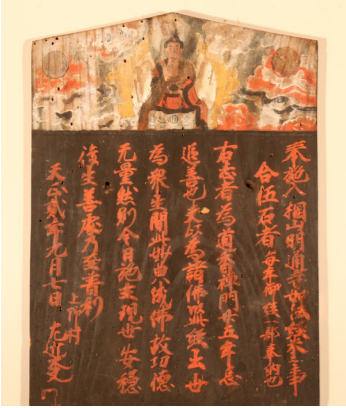 奉施入棡山明通寺如法経米事
合伍石者 毎年御経一部奉納也
右志者為道禅門第五年忌
追善也夫以為諸佛出世
為衆生開此妙成佛故功徳
无量然則今日施主現世安穏
後生善處乃至普利
上村
天貳年九月七日 左近大夫